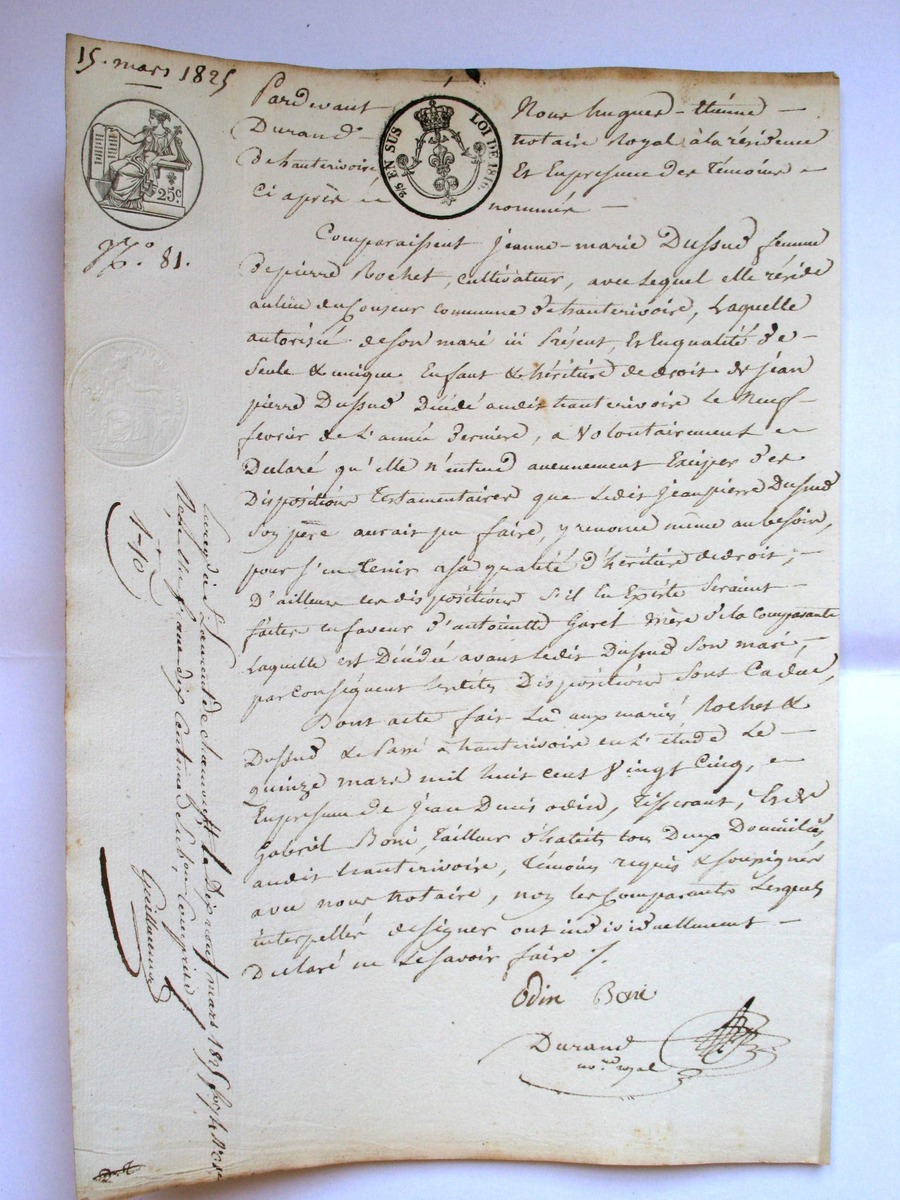 15. mars 1825
25c.
2/5 EN SUS LOI DE 1816.
N.º 81.
Pardevant Nous hugues-etienne
Durand notaire Royal à la résidence
de hauterivoire Et En presence des témoins
Ci après nommés
Comparaissent Jeanne-marie Dussud femme
de pierre Rochet, cultivateur, avec Lequel elle réside
au lieu du commune d'hauterivoire, Laquelle
autorisée de son mari ici Présent, Et En qualité de
Seule & unique Enfant & héritière de droit de jean
pierre Dussud Décédé audit hauterivoire Le Neuf
fevrier de L'année derniere, a Volontairement
Declaré qu'elle n'entend aucunement Exciper des
Dispositions testamentaires que Ledit Jean pierre Dussud
Son père aurait pu faire, y renonce même au besoin,
pour s'en tenir a sa qualité d'héritière de droit ;
D'ailleurs ces dispositions S'il En Existe Seraient
faites en faveur d'antoinette Garel mère de la Comparante
Laquelle est Décédée avant Ledit Dussud Son mari,
par Conséquent Dispositions Sont Caduc,
Dont acte fait Lu aux mariés Rochet &
Dussud & Passé a hauterivoire en L'étude Le
quinze mars mil huit cent Vingt Cinq, en
En presence de Jean Denis odin, tisserant, Et de
Gabriel Boni, tailleur d'habits tous Deux Domiciliés
audit hauterivoire, témoins requis & soussignés
avec nous Notaire, non les Comparants Lesquels
interpellés de signer ont individuellement
Declaré ne Le Savoir faire ./.
Odin Boni
Durand
no.re royal
1-10
Enregistré à St Laurent de chamousset le Dix neuf mars 1825
Reçu un franc dix Centimes Compris
Guillermet